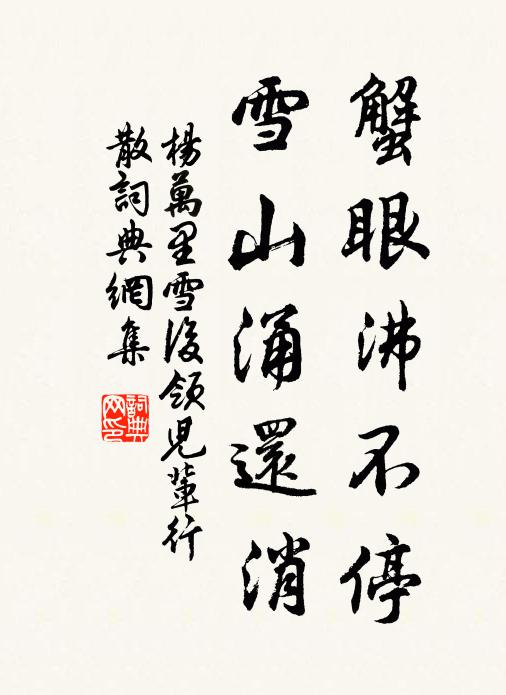 蟹眼沸不停
雪山涌還消
楊萬里雪後領兒輩行
散詞典網集
詞典网印